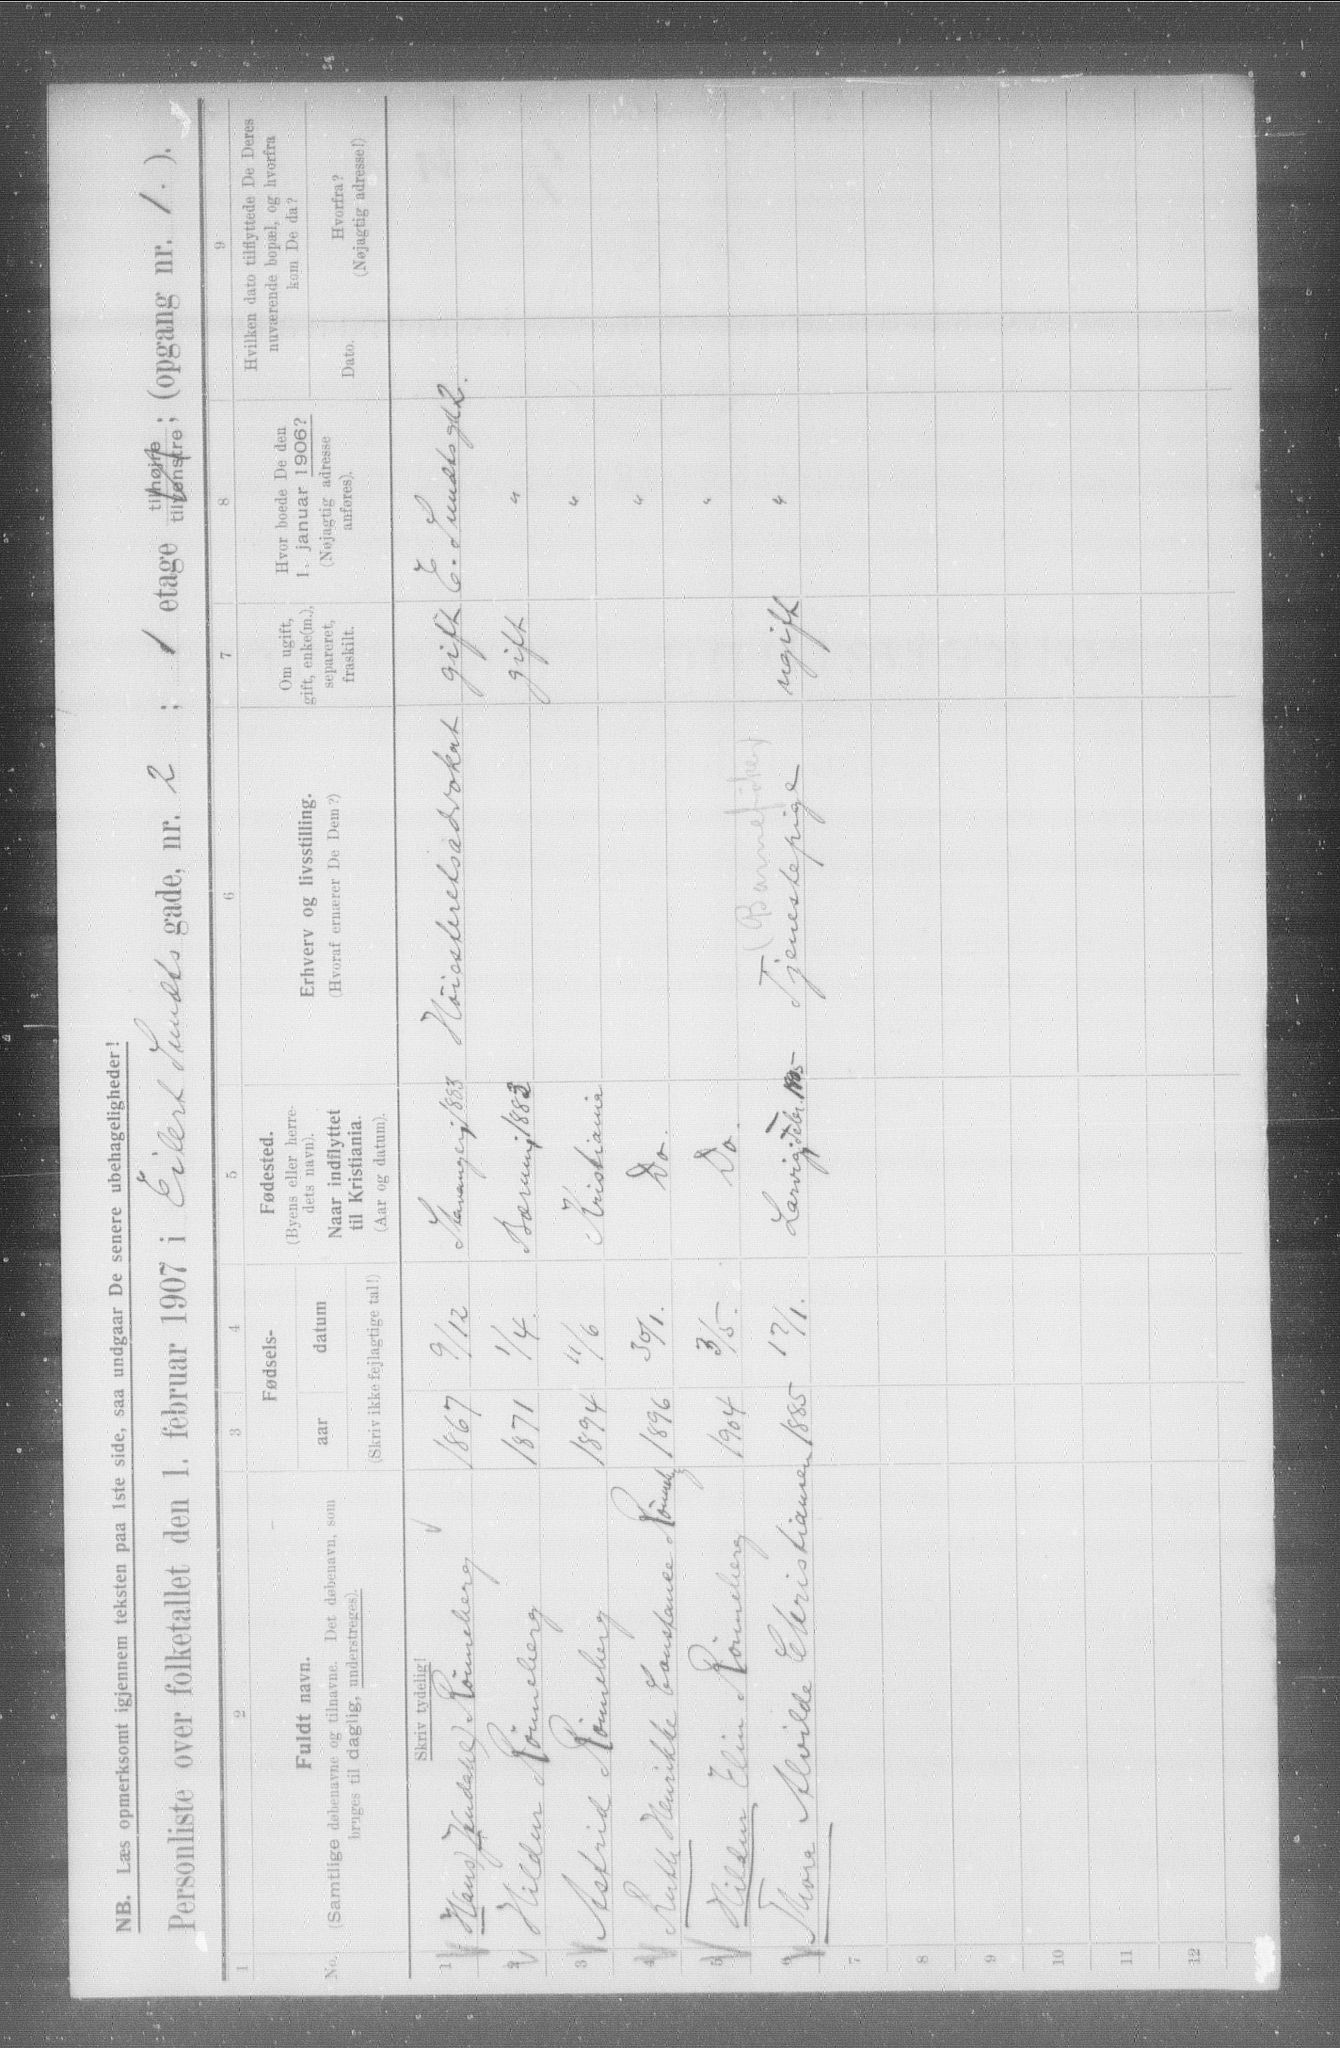 NB. Læs opmerksomt igjennem teksten paa 1ste side, saa undgaar De senere ubehageligheder!
Personliste over folketallet den 1. februar 1907 i Eilert Sundts gade, nr. 2 ; 1 etage tilhøjre tilvenstre ; (opgang nr. 1. ).
1 2 3 4 5 6 7 8 9
No. Fuldt navn. (Samtlige døbenavne og tilnavne. Det døbenavn, som bruges til daglig, understreges).
Fødsels- aar datum (Skriv ikke fejlagtige tal!)
Fødested. (Byens eller herredets navn). Naar indflyttet til Kristiania. (Aar og datum).
Erhverv og livsstilling. (Hvoraf ernærer De Dem?)
Om ugift, gift, enke(m.), separeret, fraskilt.
Hvor boede De den 1. januar 1906? (Nøjagtig adresse anføres).
Hvilken dato tilflyttede De Deres nuværende bopæl, og hvorfra kom De da?
Dato. Hvorfra? (Nøjagtig adresse!)
Skriv tydelig!
1 Hans) Rönneberg 1867 9/12 Stavanger 1883 Höiesteretsadvokat gift E. Sundts gd 2.
2 Hildur Rönneberg 1871 1/4. Bærum 1883 gift "
3 Astrid Rönneberg 1894 11/6 Kristiania "
4 Ruth Henrikke Constance Rönneberg 1896 30/1. Do. "
5 Hildur Elin Rönneberg 1904 3/5. Do. "
6 Thora Alvilde Christiansen 1885 17/1. Larvig, Febr. 1905 Tjenestepige ugift "
7
8
9
10
11
12